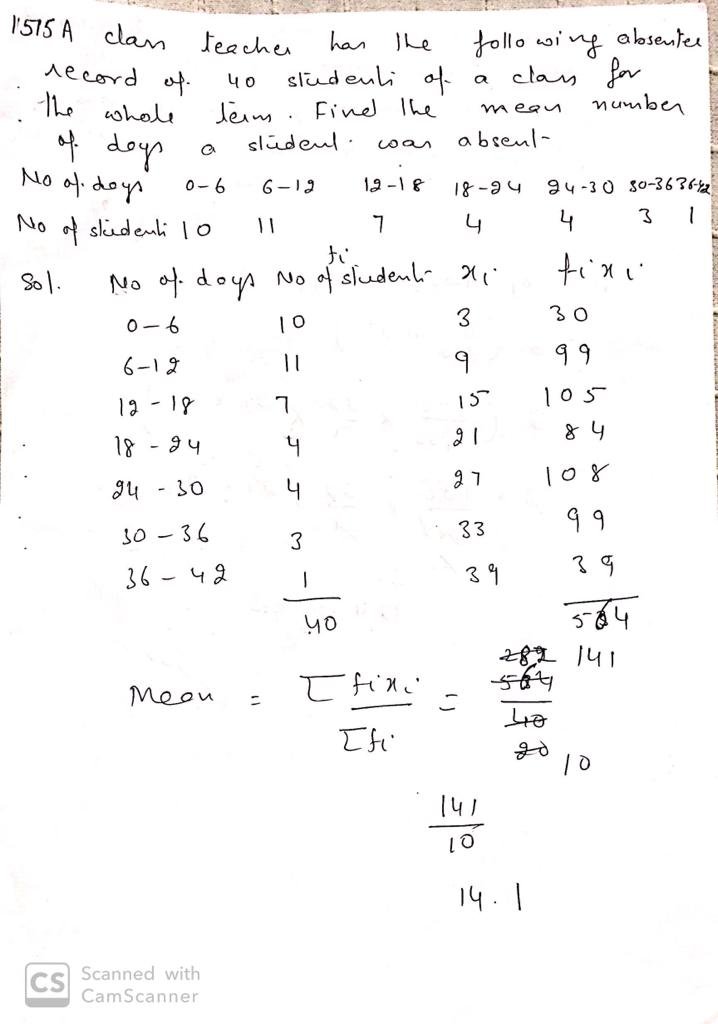 1575 A class teacher has the following absentee
record of 40 students of a class for
the whole term. Find the mean number
of days a student was absent
No of days 0-6 6-12 12-18 18-24 24-30 30-36 36-42
No of students 10 11 7 4 4 3 1
Sol. No of days No of students fi xi fixi
0-6 10 3 30
6-12 11 9 99
12-18 7 15 105
18-24 4 21 84
24-30 4 27 108
30-36 3 33 99
36-42 1 39 39
40 564
Mean = Σfixi / Σfi = 564 / 40
282 141
20 10
141
10
14.1
CS Scanned with
CamScanner